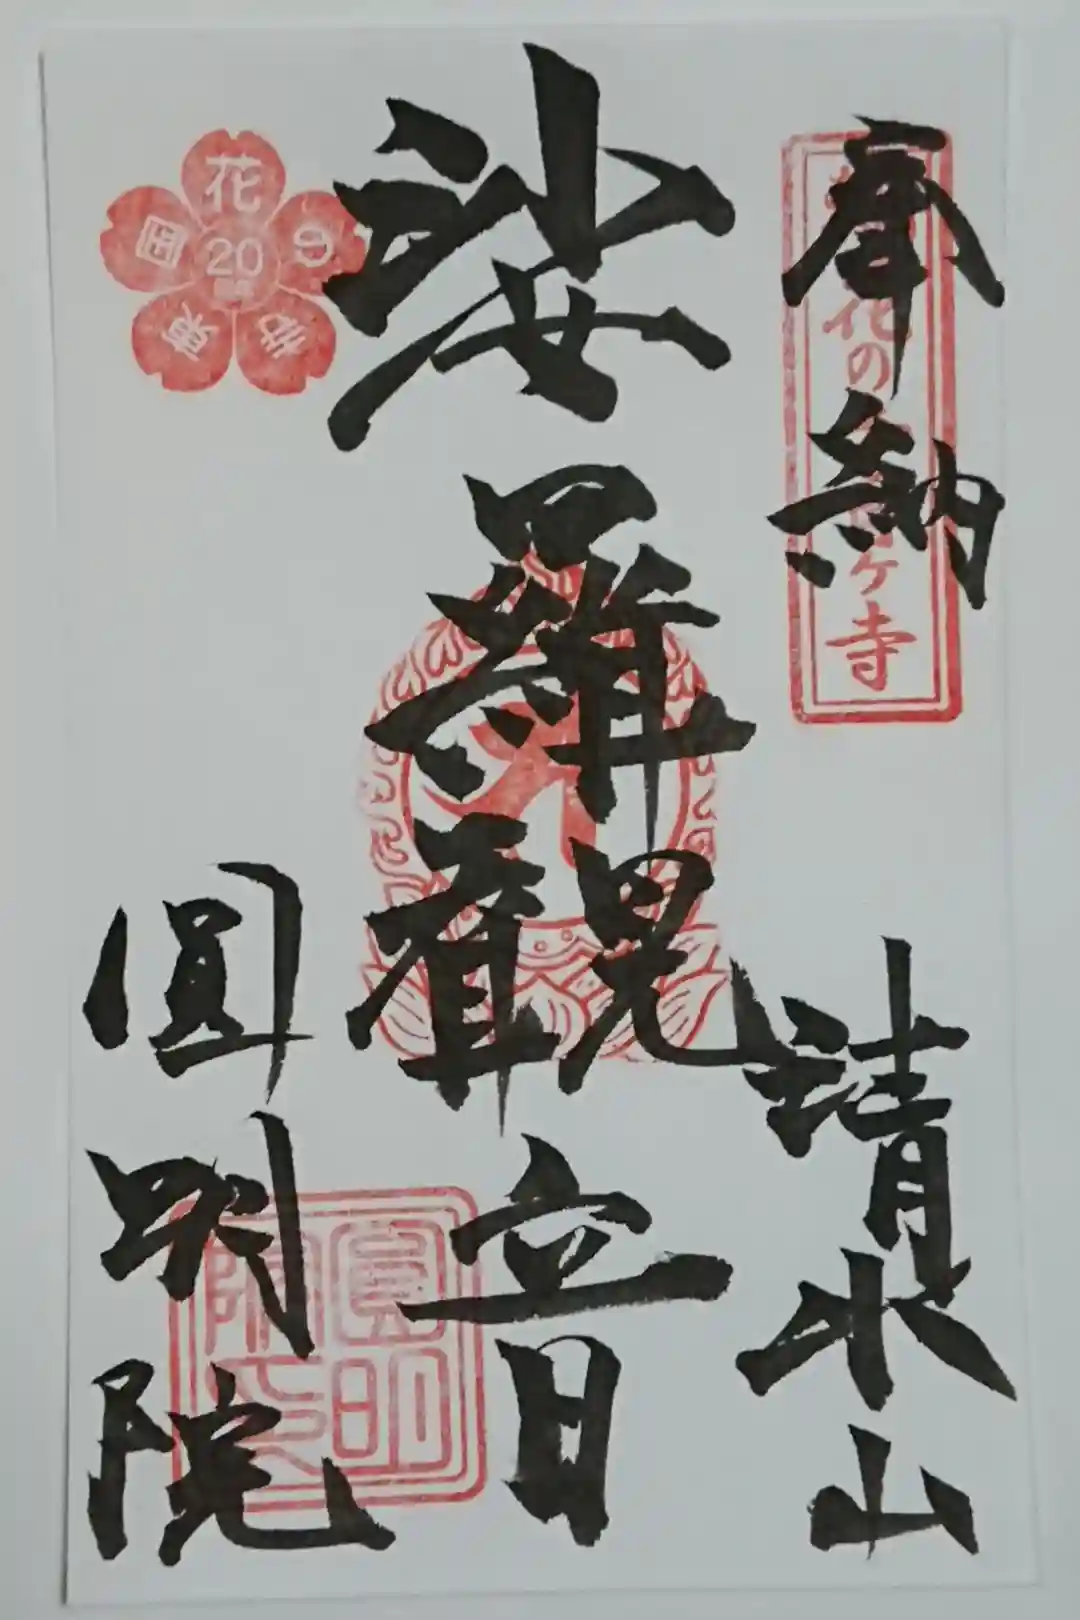 奉納
清水山
娑羅観音
圓明院
東国花の寺
20
花の
ヶ寺